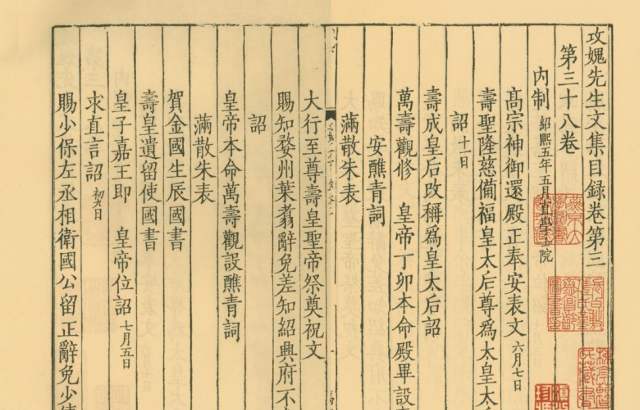 攻媿先生文集目録卷第三
第三十八卷
内制 紹熙五年五月直學士院
髙宗神御還殿正奉安表文 六月七日
壽聖隆慈備福皇太后尊爲太皇太
詔 十二日
壽成皇后改稱爲皇太后詔
萬壽觀修 皇帝丁卯本命殿畢設
安醮青詞
滿散朱表
大行至尊壽皇聖帝祭奠祝文
賜知婺州葉翥辭免差知紹興府不
詔
皇帝本命萬壽觀設醮青詞
滿散朱表
賀金國生辰國書
壽皇遺留使國書
皇子嘉王即 皇帝位詔 七月五日
求直言詔 初六日
賜少保左丞相衛國公留正辭免少